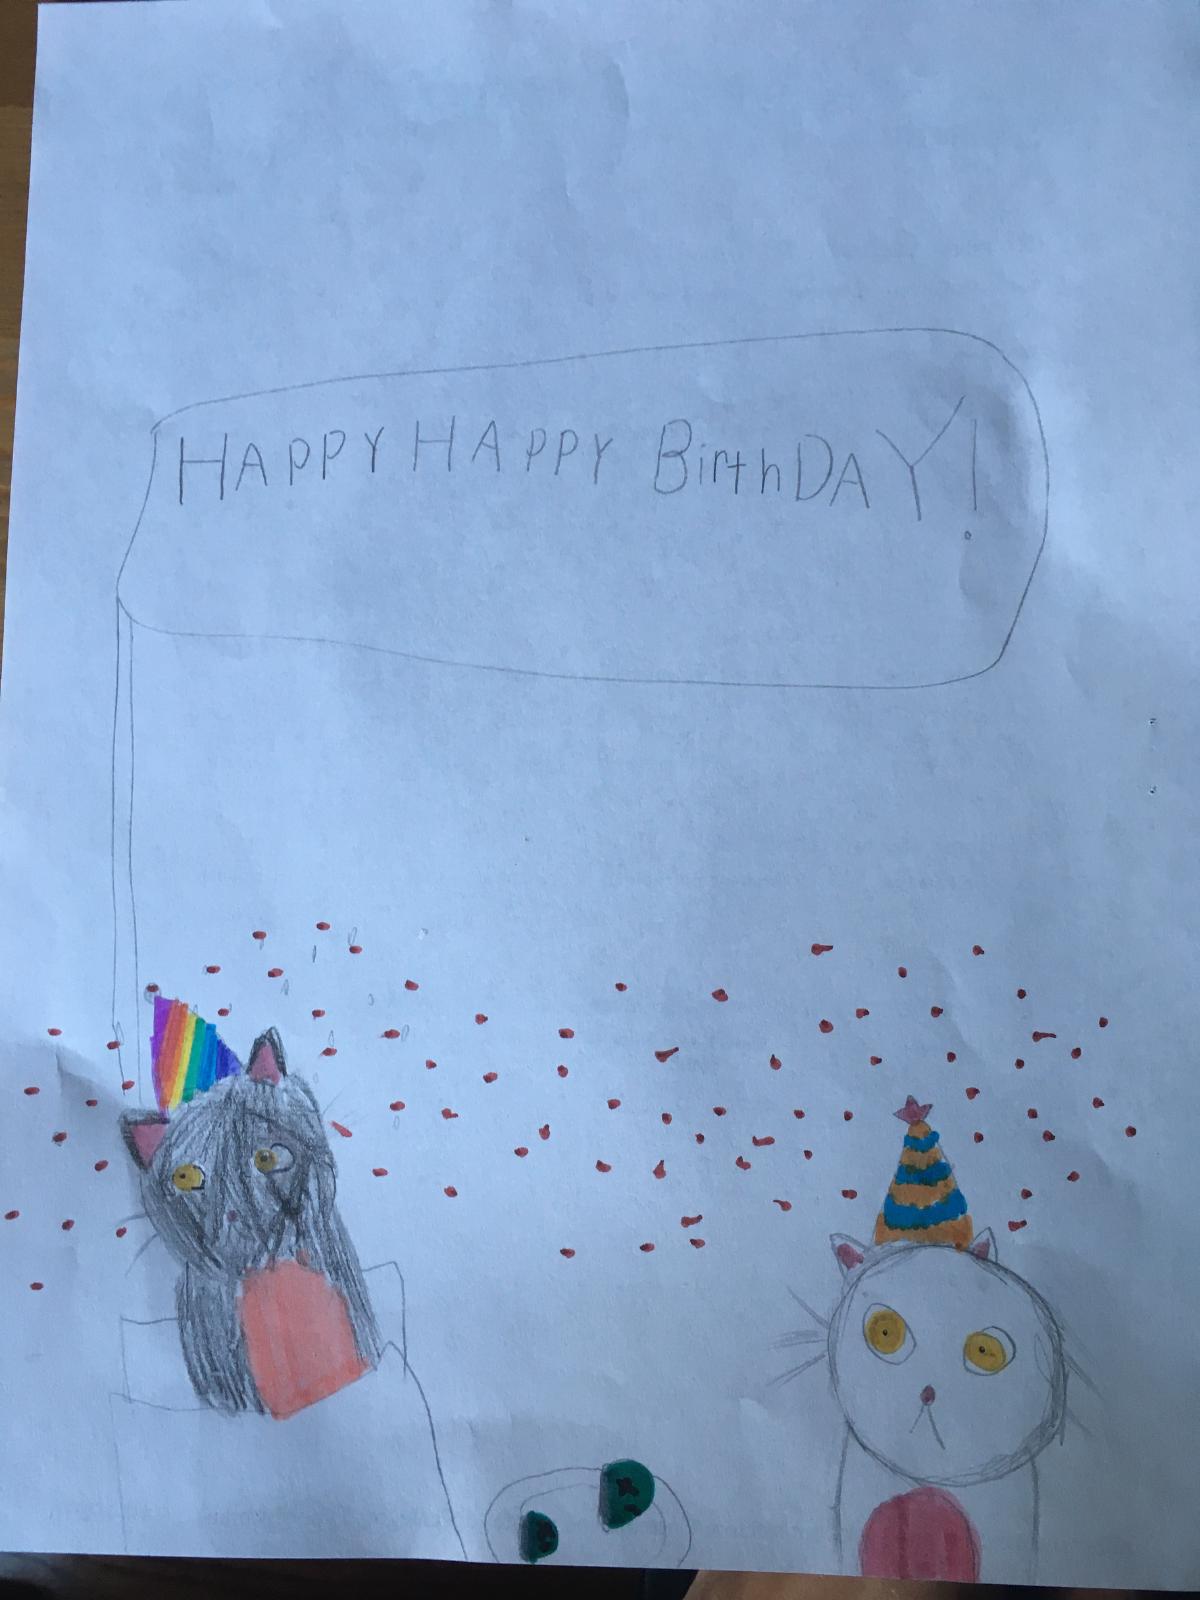 HAPPY HAPPY BirthDAY!